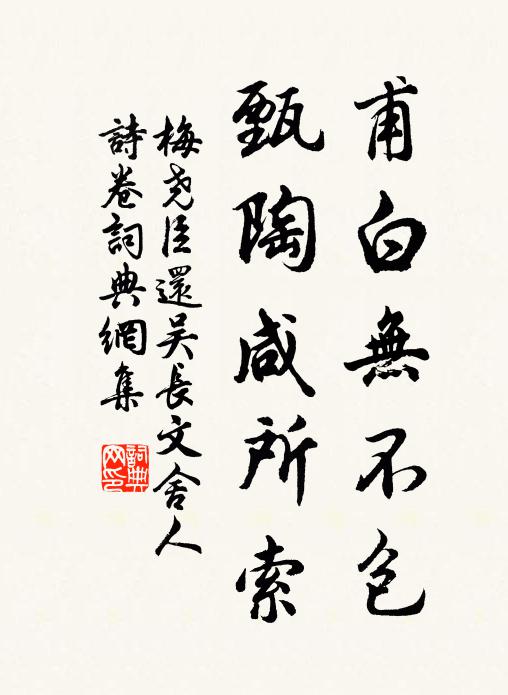 甫白無不包
甄陶咸所索
梅堯臣還吴長文舍人
詩卷詞典網集
詞典
网印